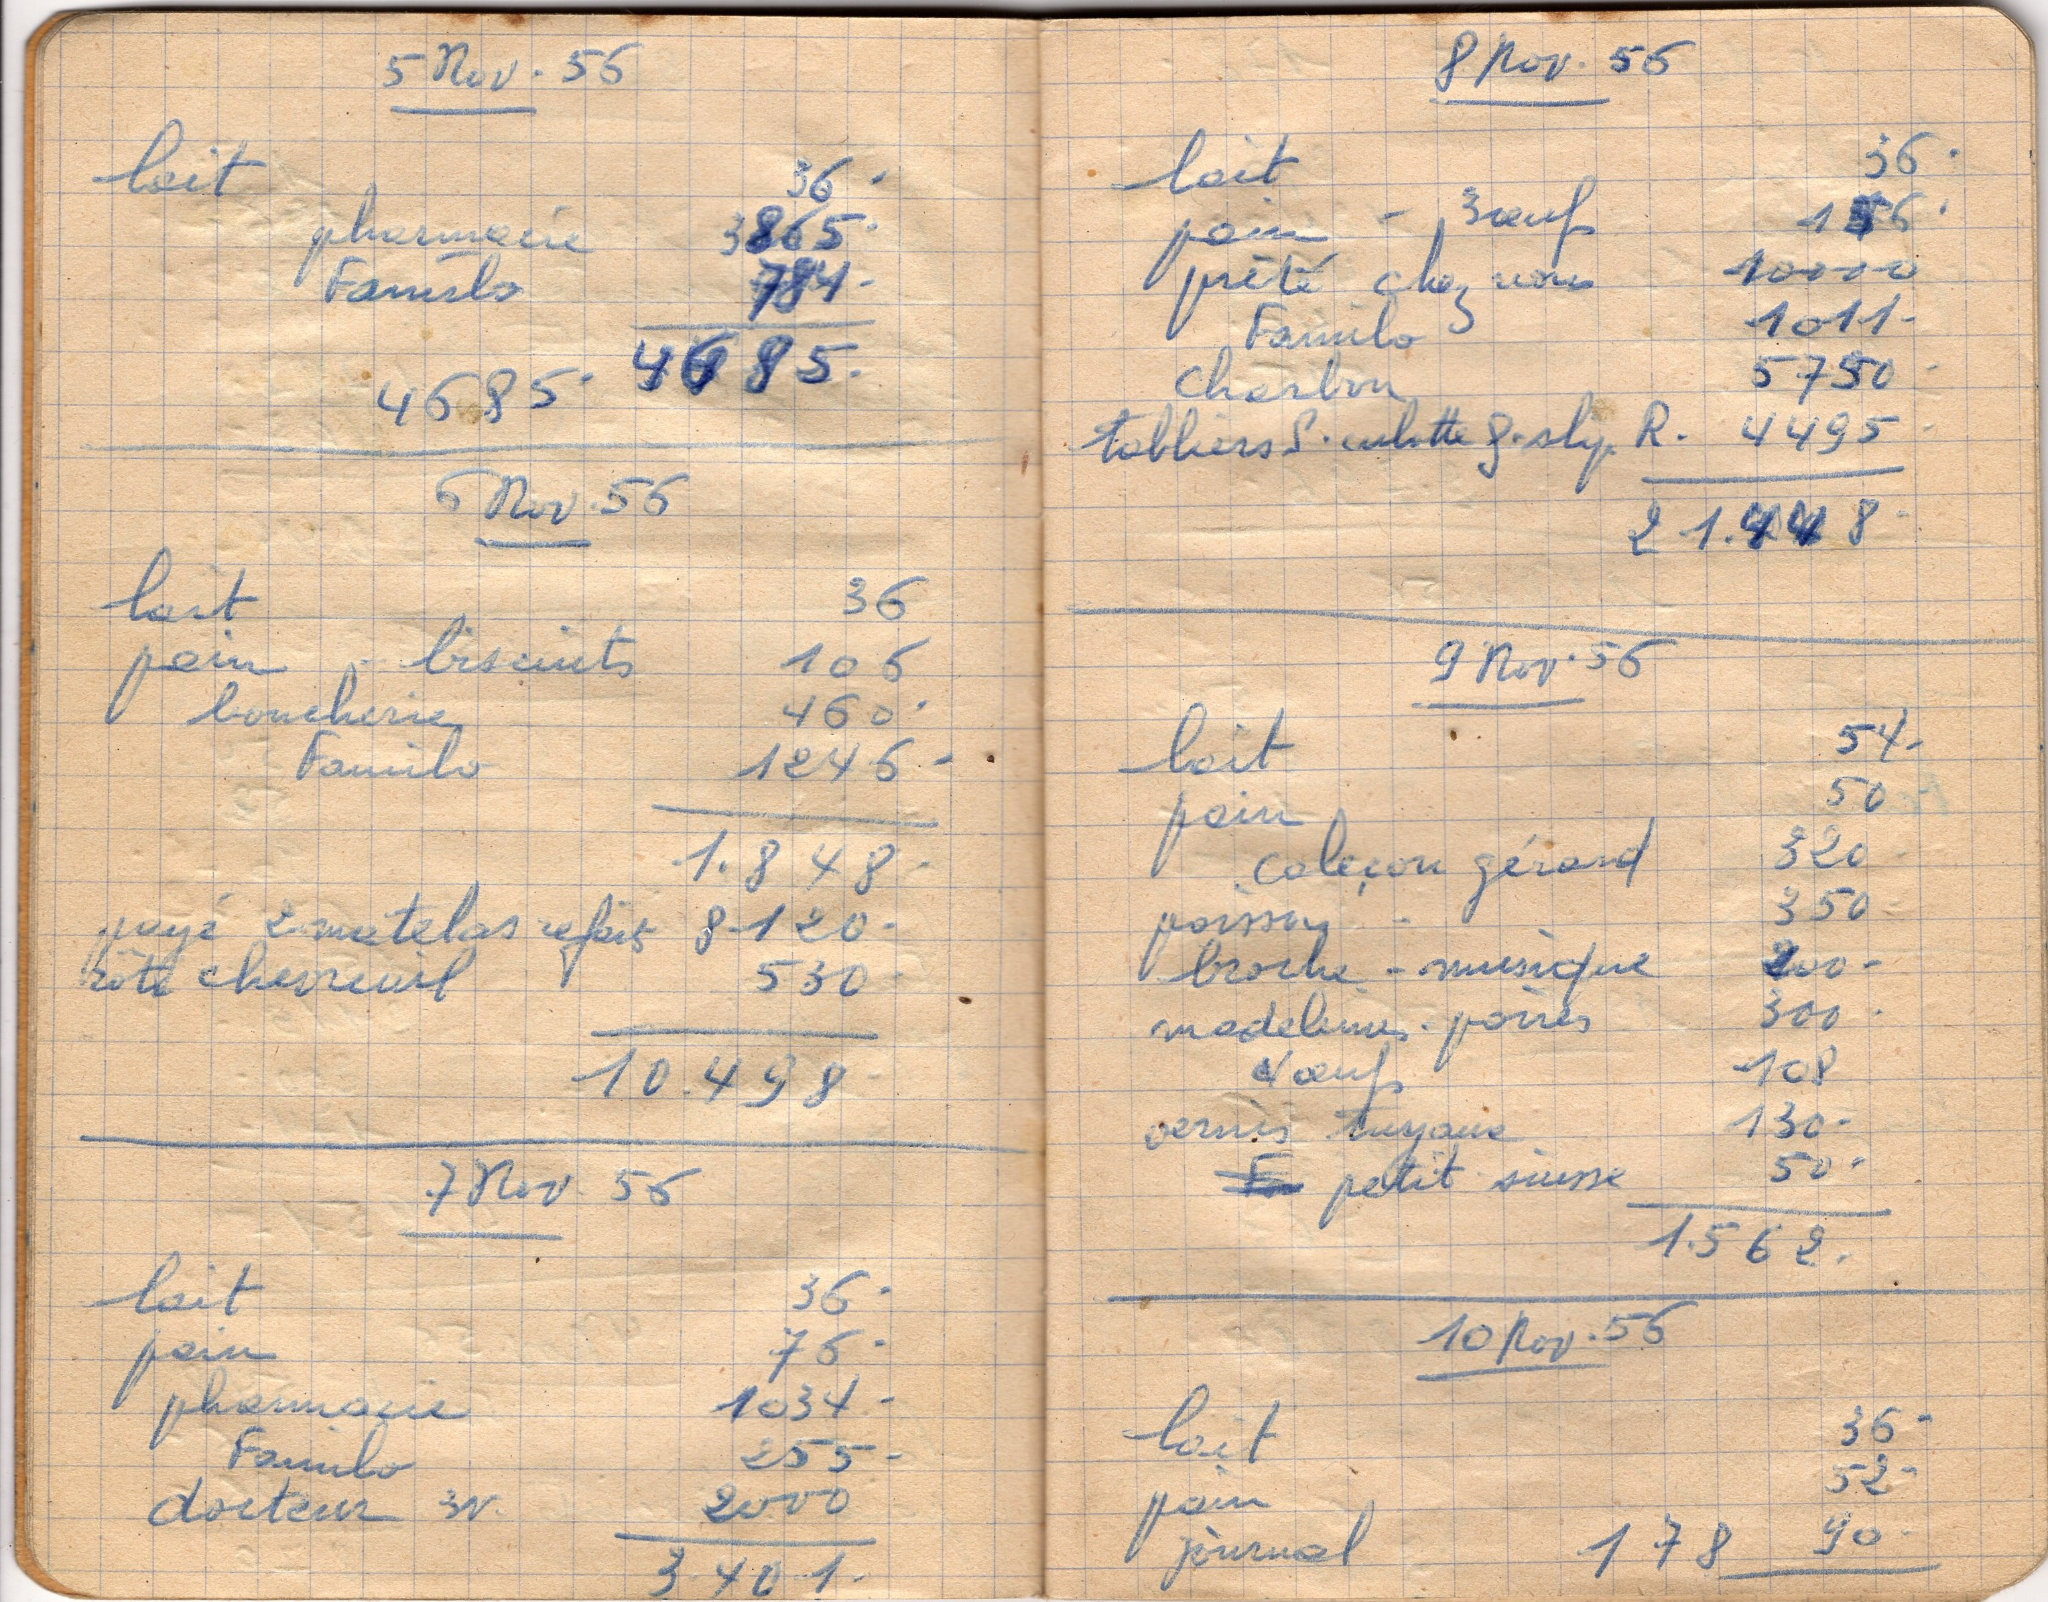 5 Nov. 56
lait 36.
pharmacie 3865.
Familo 784.
4685. 4685.
6 Nov. 56
lait 36
pain - biscuits 106
boucherie 460.
Familo 1246.
1.848.
payé 2 matelas refaits 8.120.
rôti chevreuil 530
10.498
7 Nov. 56
lait 36.
pain 76.
pharmacie 1034.
Familo 255.
docteur 3v. 2000
3.401.
8 Nov. 56
lait 36.
pain - 3 œufs 156.
prêté chez nous 10000
Familo 1011.
charbon 5750
tabliers S. culotte g. slip. R. 4495
21.448.
9 Nov. 56
lait 54.
pain 50
caleçon gérard 320
poisson - 350
broche - musique 200-
madeleines. poires 300.
4 œufs 108
vernis tuyaux 130-
petit suisse 50.
1.562.
10 Nov. 56
lait 36-
pain 52-
journal 178 90.